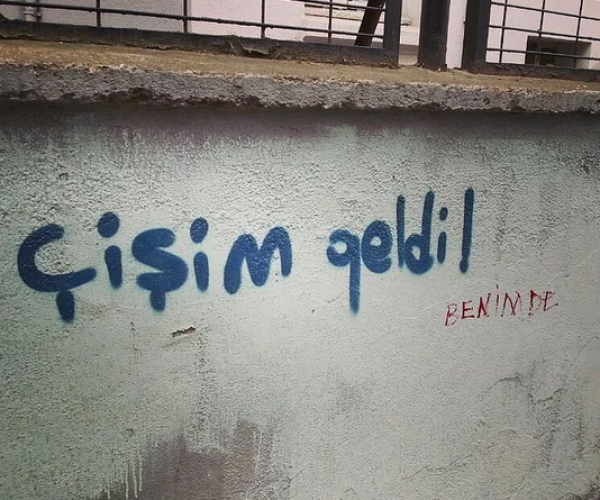 Çişim geldi!
BENİMDE